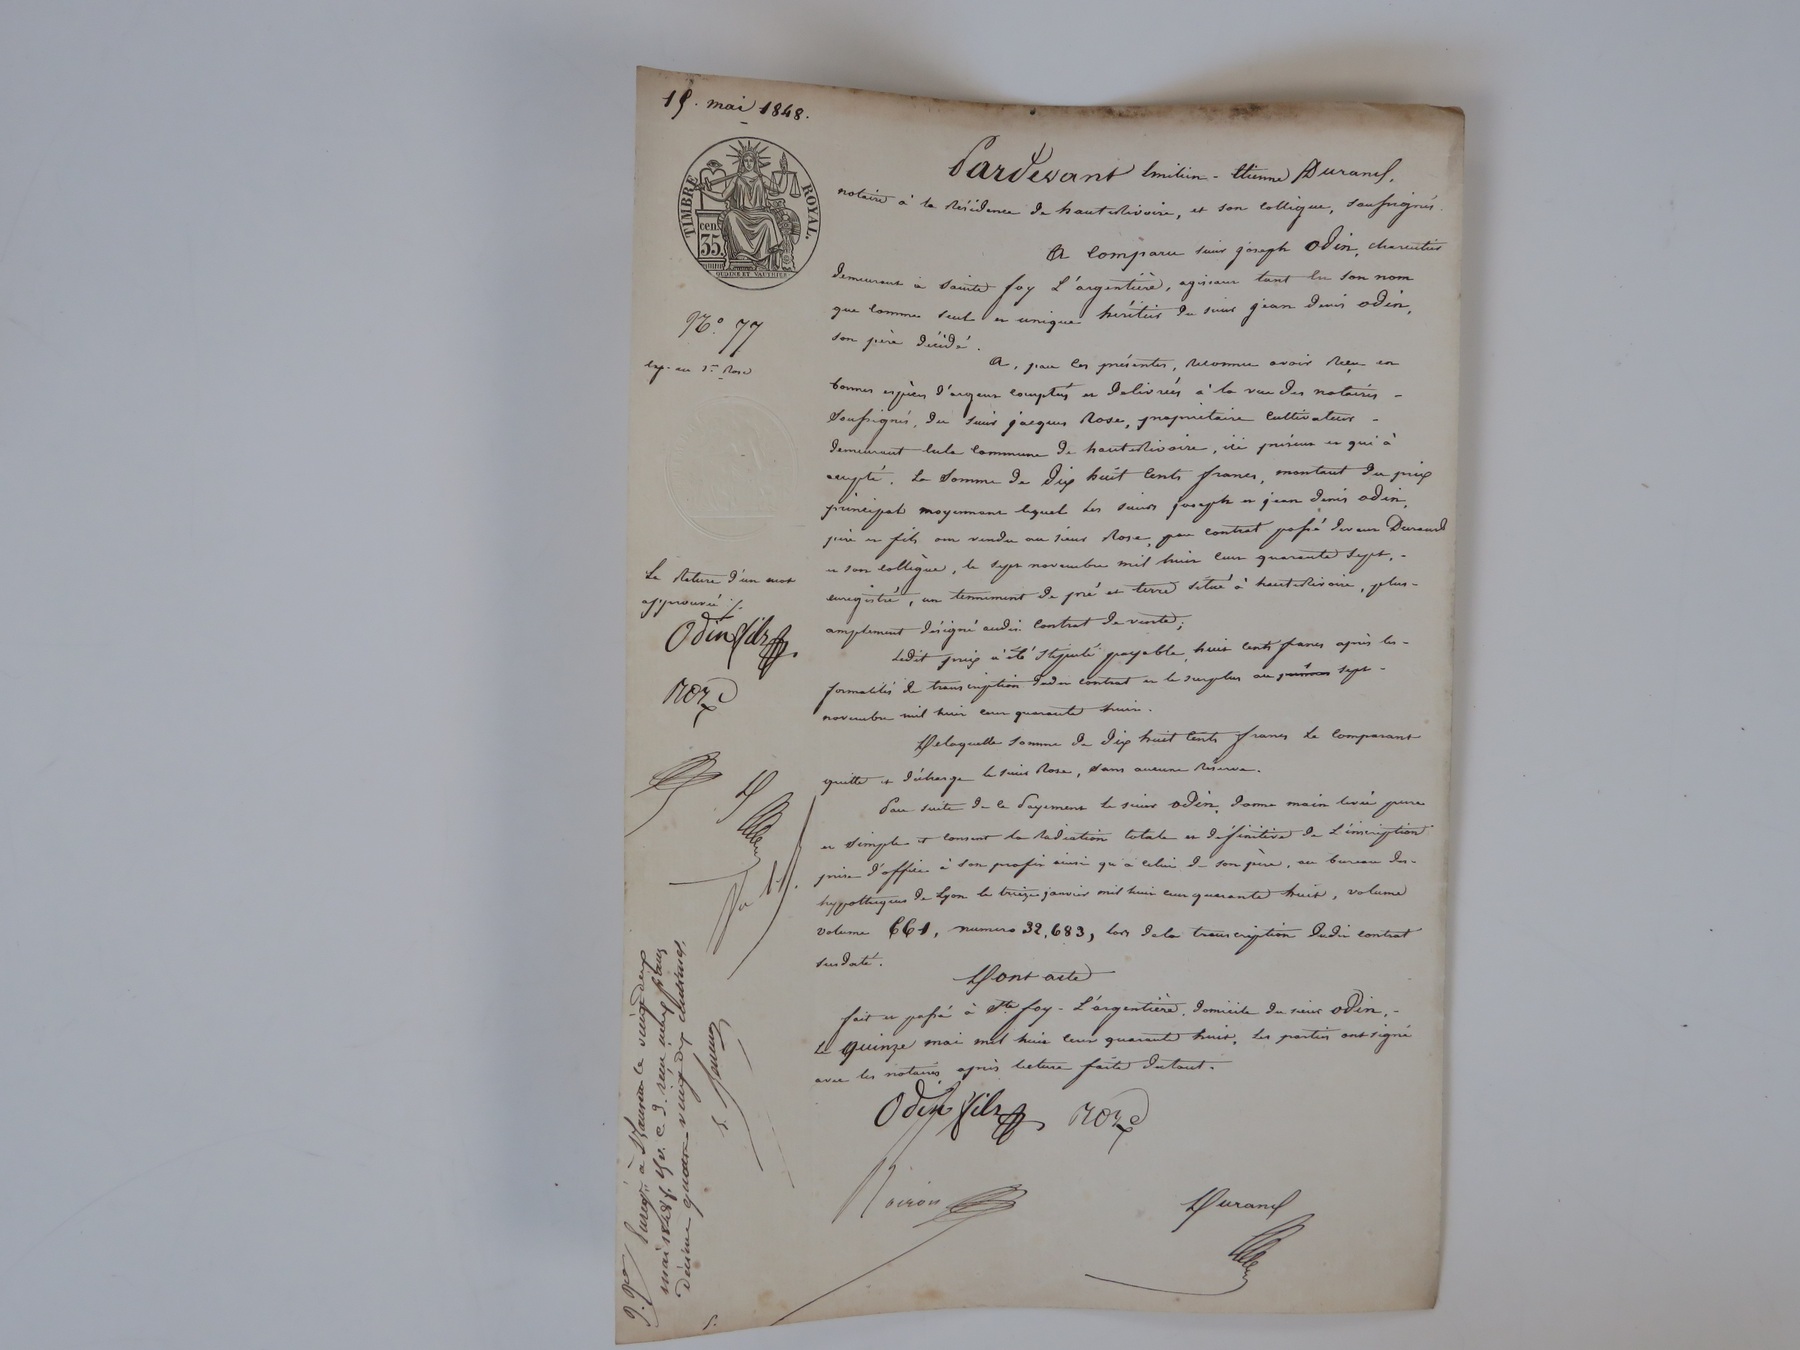 15. mai 1848.
TIMBRE ROYAL.
cen. 35.
N.º 77
La Rature d'un mot
approuvée ./.
Odin fils
Roze
Pardevant Emilien-Etienne Durand,
notaire à la Résidence de hauteRivoire, et son collègue, soussignés.
A Comparu sieur joseph Odin, charcutier
demeurant à Sainte foy L'argentière, agissant tant En Son nom
que Comme seul et unique héritier du sieur jean denis Odin,
son père décédé.
A, par Ces présentes, Reconnu avoir Reçu en
bonnes espèces d'argent comptées et délivrées à la vue des notaires -
Soussignés, du Sieur jacques Rose, propriétaire Cultivateur -
demeurant En la Commune de hauteRivoire, ici présent et qui à
accepté. La Somme de Dix huit Cents francs, montant du prix
principal moyennant lequel Les Sieurs joseph et jean denis Odin,
père et fils ont vendu au sieur Rose, par contrat passé devant Durand
et son Collègue, le sept novembre mil huit cent quarante Sept, -
enregistré, un tennement de pré et terre Situé à hauteRivoire, plus-
amplement désigné audit Contrat de vente;
Ledit prix a été Stipulé payable, huit Cents francs après les -
formalités de transcription dudit contrat et le surplus au sept -
novembre mil huit cent quarante huit.
Delaquelle Somme de dix huit Cents francs Le Comparant
quitte et décharge le sieur Rose, Sans aucune Réserve.
Par suite de ce Payement Le sieur Odin, donne main levée pure
et Simple et Consent la Radiation totale et définitive de L'inscription
prise d'office à Son profit ainsi qu'à celui de son père, au bureau des -
hypothèques de Lyon le treize janvier mil huit cent quarante huit, volume
volume 661, numero 32,683, Lors de la transcription Dudit contrat
susdaté.
Dont acte
fait et passé à Ste foy-L'argentière, domicile du sieur Odin, -
Le Quinze mai mil huit cent quarante huit. Les parties ont signé
avec les notaires, après lecture faite du tout.
Odin fils Roze
Roiron
Durand
mai 1848 f. v. c. d. reçu neuf francs
Décime quatre vingt dix centimes.